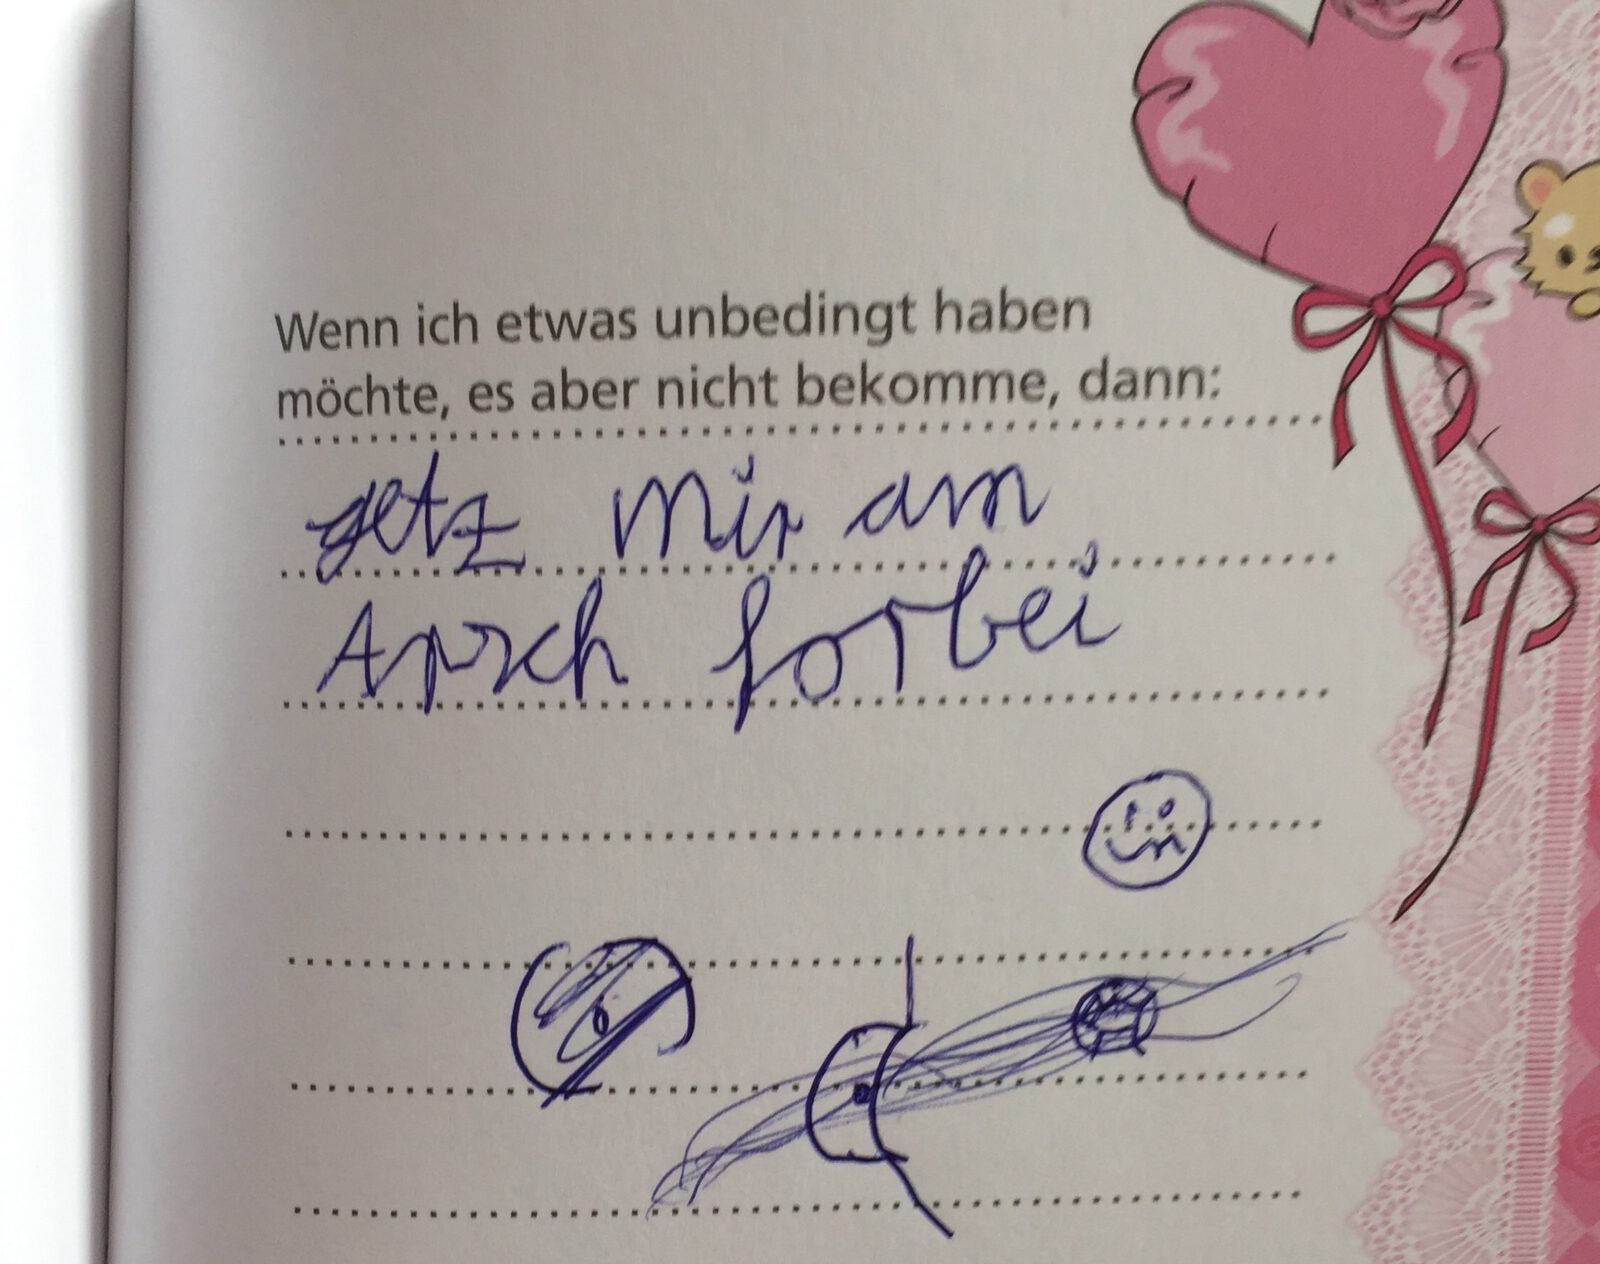 Wenn ich etwas unbedingt haben
möchte, es aber nicht bekomme, dann:
getz mir am
Aprsch forbei